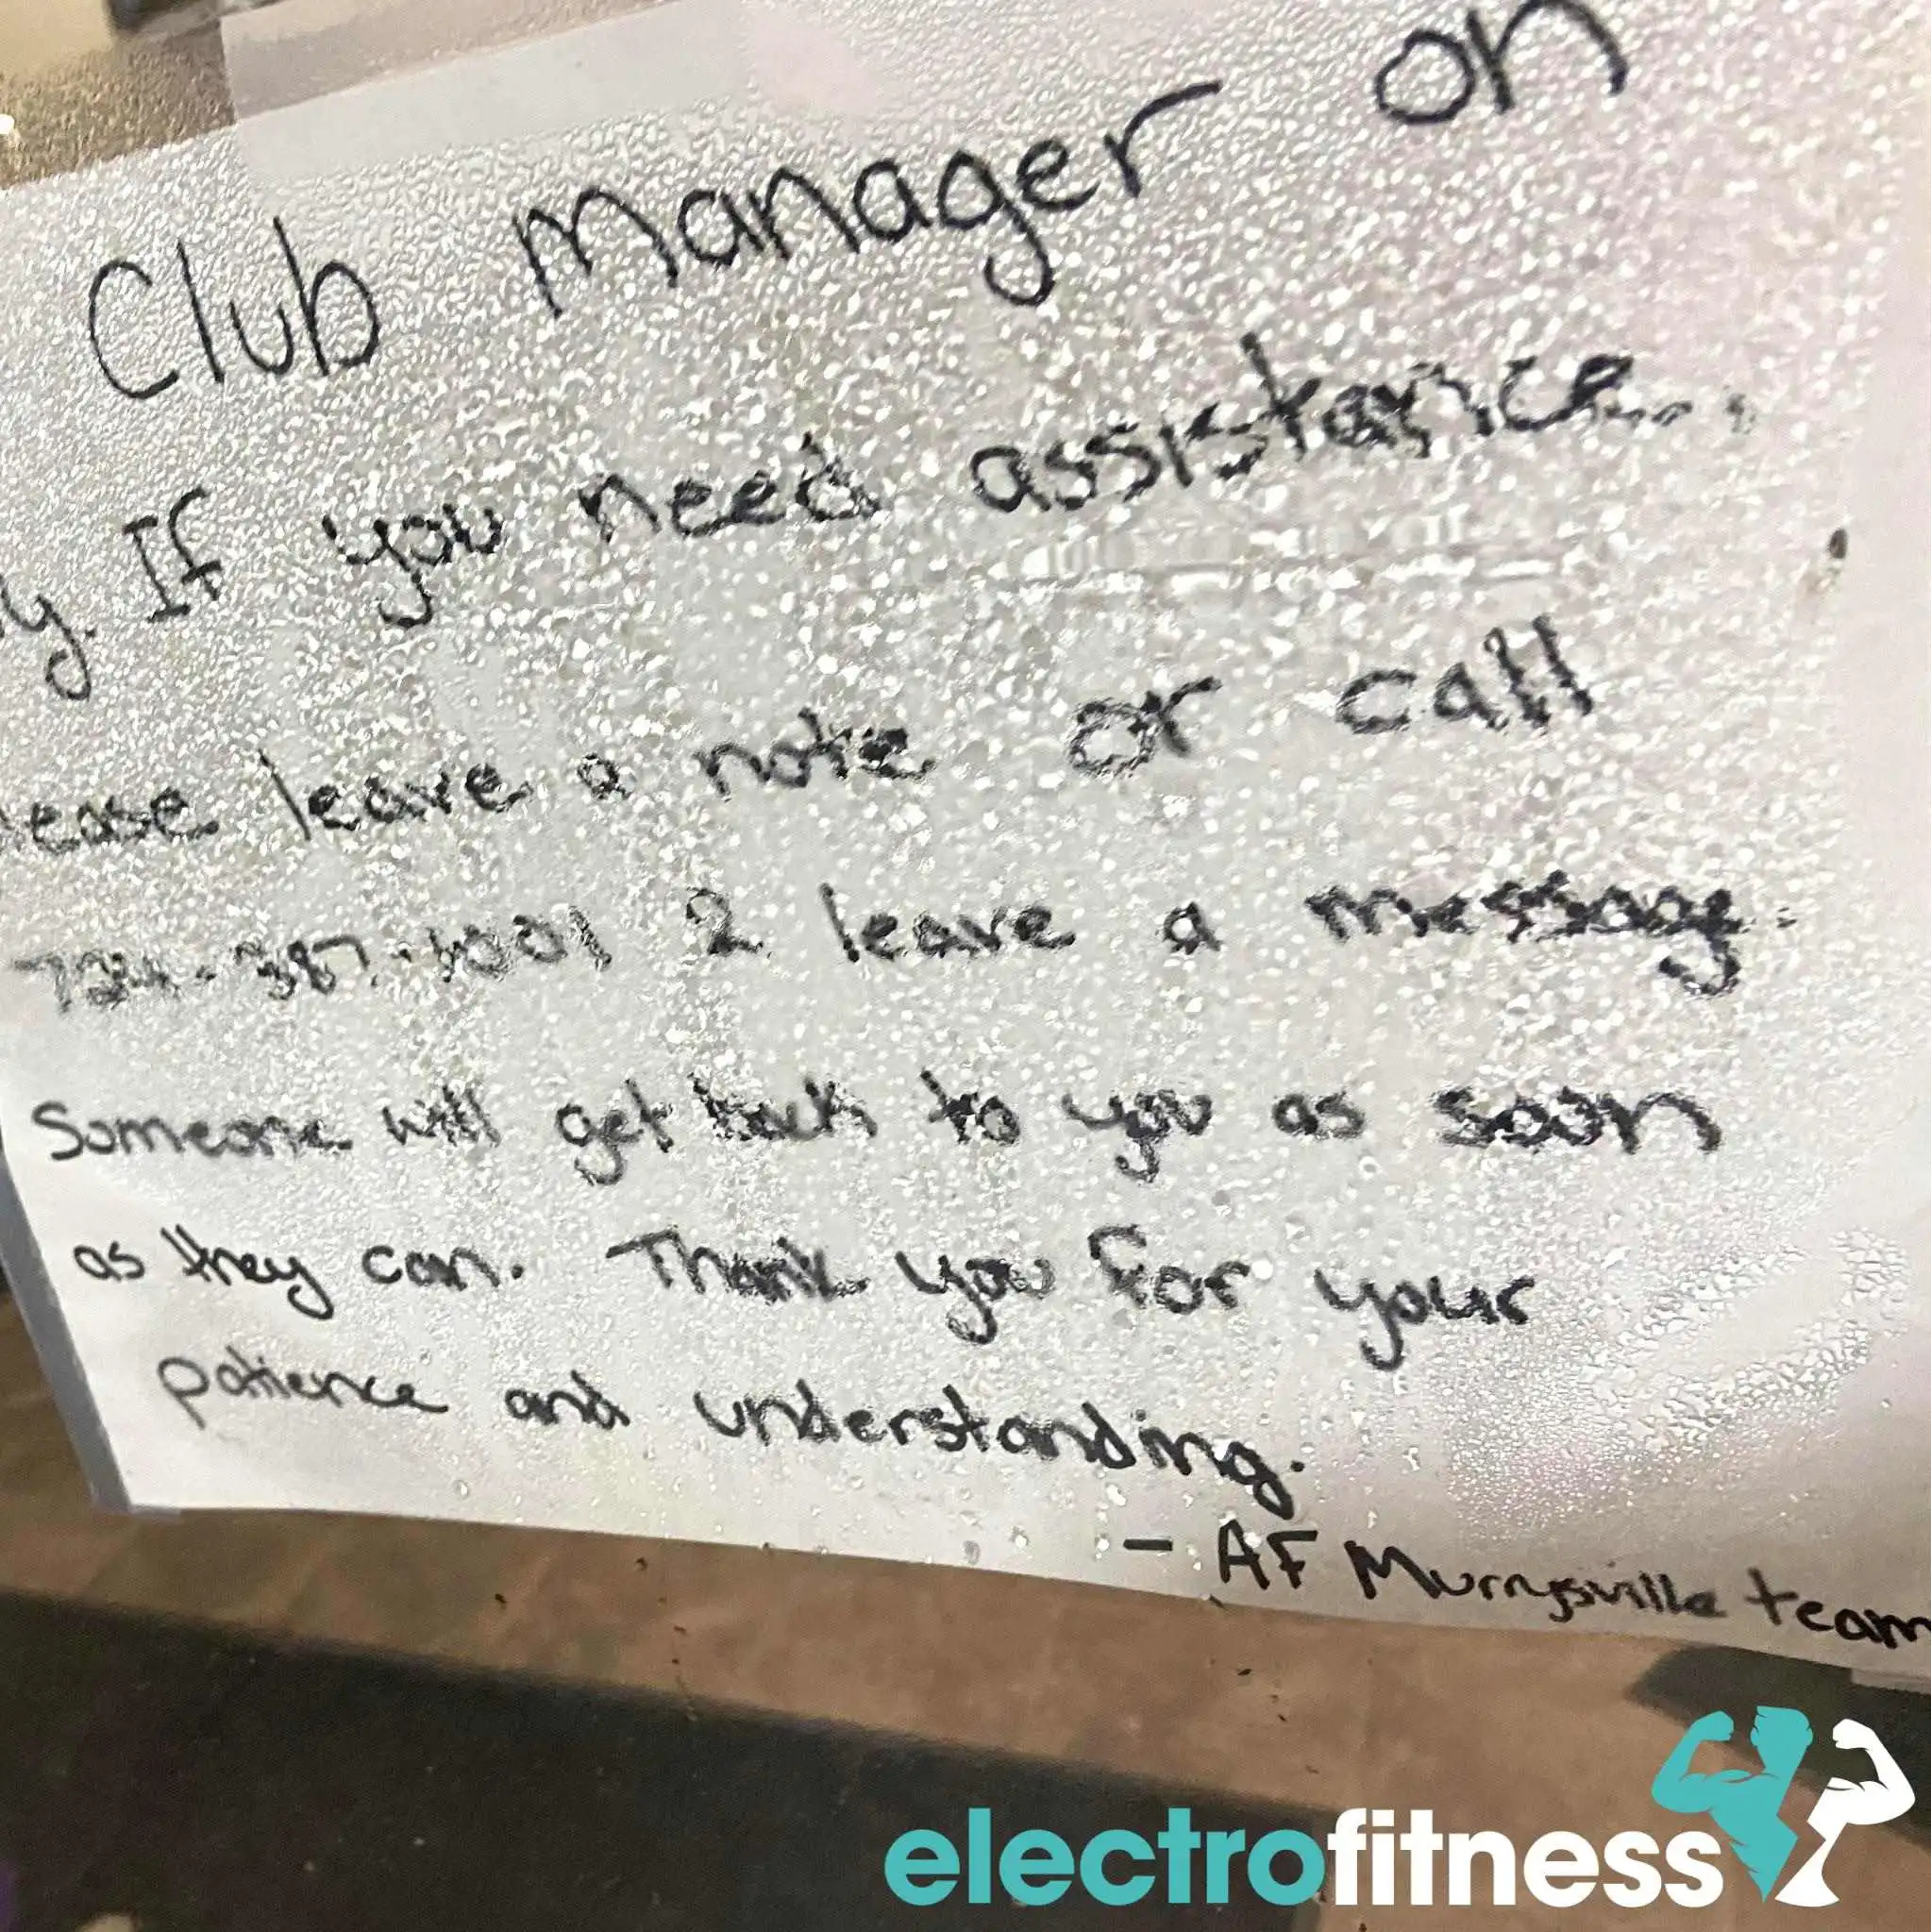 Club manager on
y. If you need assistance..
lease leave a note or call
724-387-1001 2 leave a message.
Someone will get back to you as soon
as they can. Thank you for your
patience and understanding.
- AF Murrysville team
electrofitness